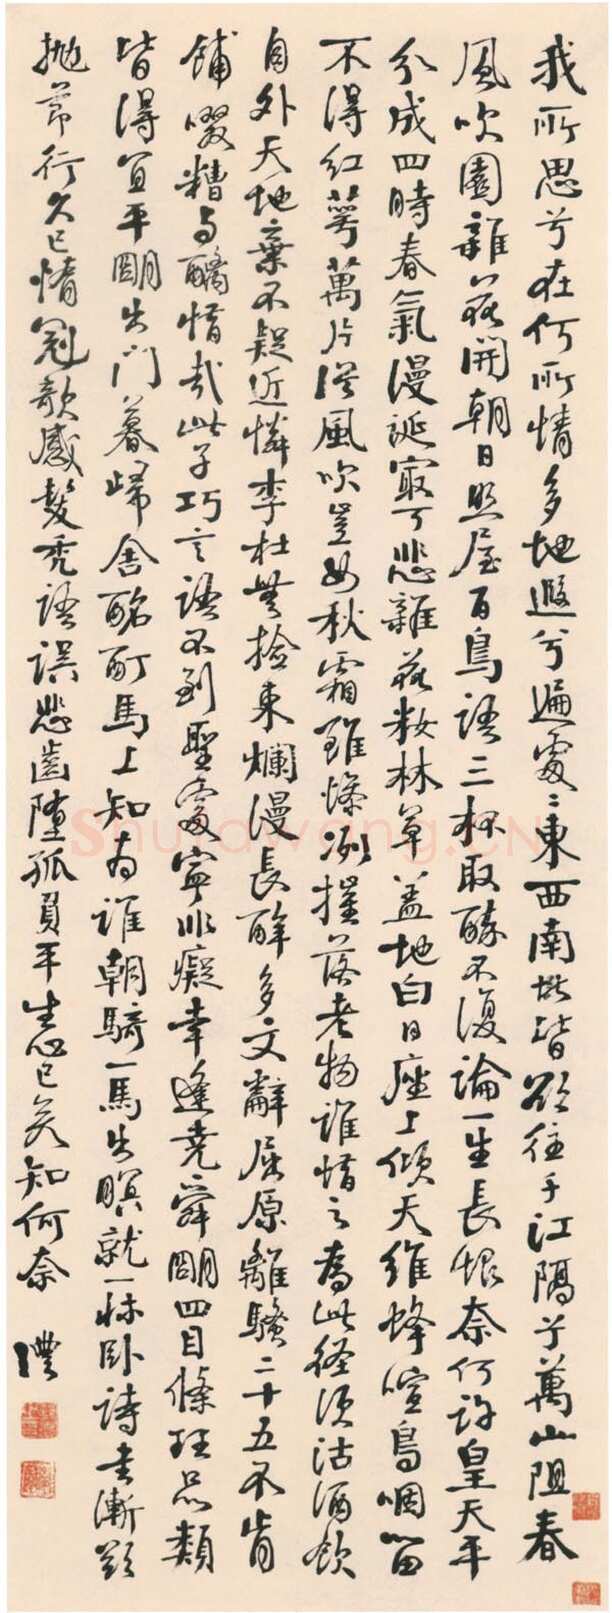 我所思兮在何所情多地遐兮遍處〻東西南北皆欲往千江隔兮萬山阻春
風吹園雜花開朝日照屋百鳥語三杯取醉不復論一生長恨奈何許皇天平
分成四時春氣漫誕最可悲雜花妝林草蓋地白日座上傾天維蜂喧鳥咽留
不得紅萼萬片從風吹豈如秋霜雖慘冽摧落老物誰惜之為此徑須沽酒飲
自外天地棄不疑近憐李杜無檢束爛漫長醉多文辭屈原離騷二十五不肯
餔啜糟與醨惜哉此子巧言語不到聖處寧非癡幸逢堯舜明四目條理品類
皆得宜平明出門暮歸舍酩酊馬上知為誰朝騎一馬出暝就一床臥詩書漸欲
拋節行久已惰冠欹感髮禿語誤悲齒墮孤負平生心已矣知何奈 澧
Shufawang.CN